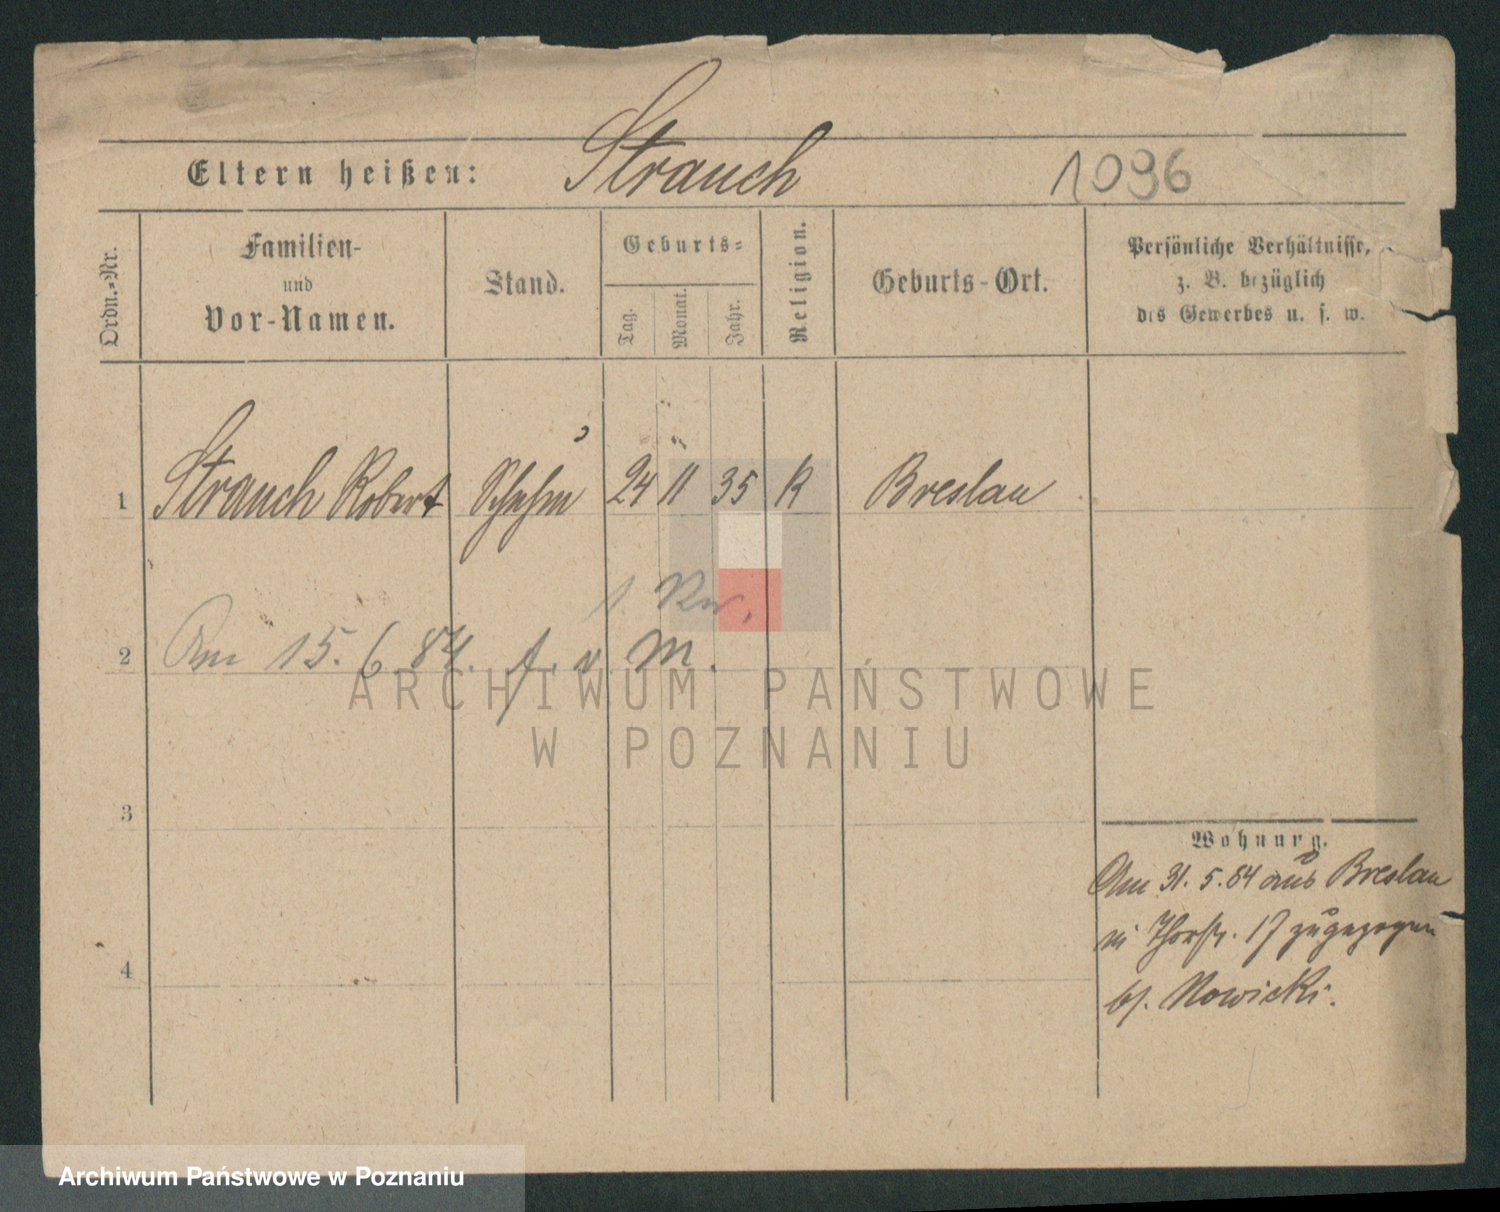 Eltern heißen: Strauch 1096
Ordn.-Nr.
Familien-
und
Vor-Namen.
Stand.
Geburts-
Tag.
Monat.
Jahr.
Religion.
Geburts-Ort.
Persönliche Verhältnisse,
z. B. bezüglich
des Gewerbes u. s. w.
1 Strauch Robert 24 11 35 K Breslau
2 Am 15. 6. 84. f. v. M.
ARCHIWUM PAŃSTWOWE
W POZNANIU
3
4
Wohnung.
Am 31. 5. 84 aus Breslau
17 zugezogen
bj. Nowicki.
Archiwum Państwowe w Poznaniu